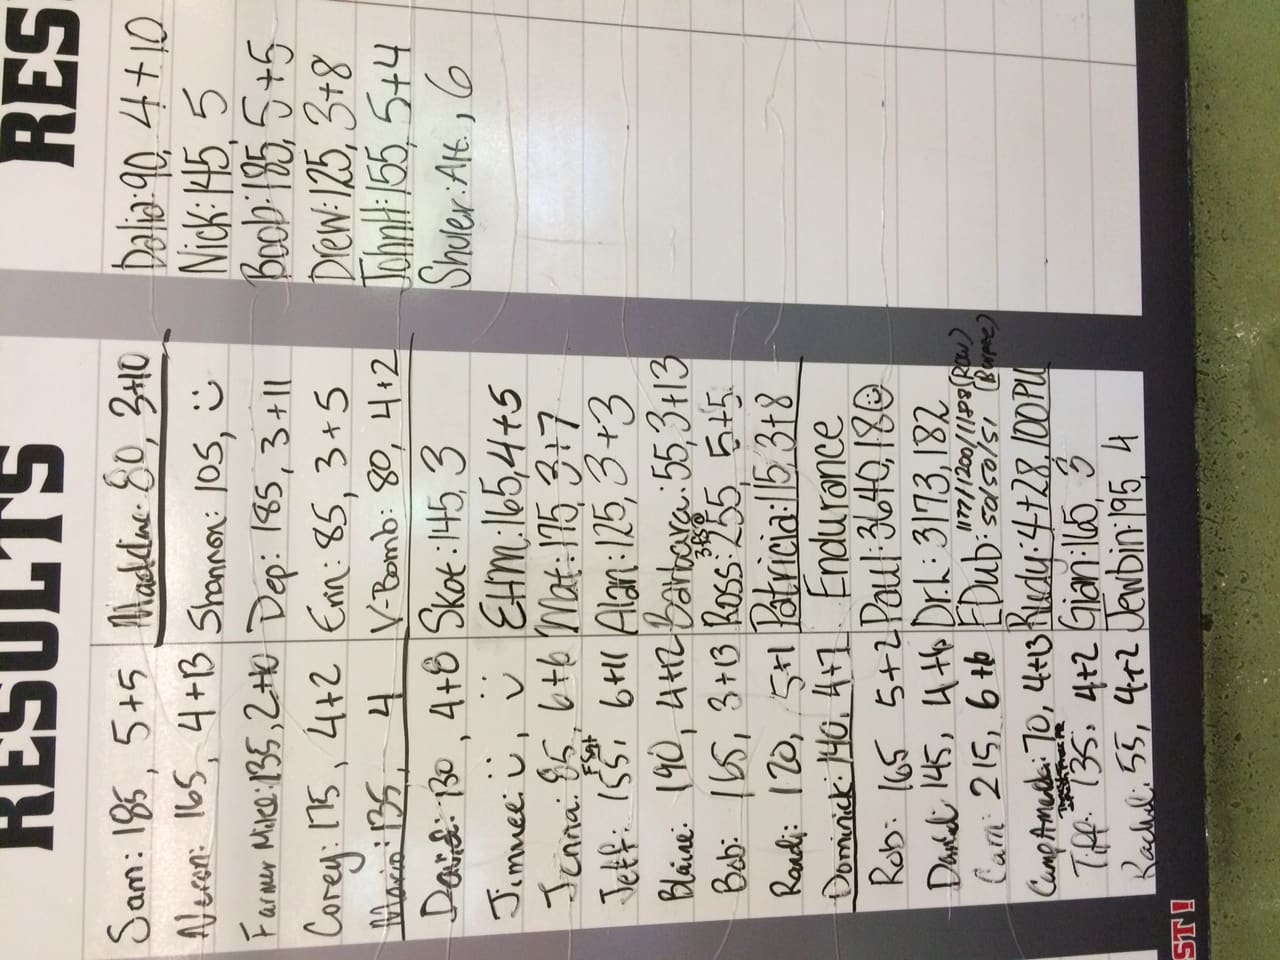 RESULTS
Sam: 185, 5+5
Neron: 165, 4+13
Farmer Mike: 135, 2+10
Corey: 175, 4+2
Mario: 135, 4
David: 130, 4+8
Jimmee: ü, ü
Jenna: 85, 6+6
Jeff: 155, 6+11
FSqt
Blaine: 190, 4+12
Bob: 165, 3+13
Randi: 120, 5+1
Dominick: 140, 4+7
Rob: 165 5+2
Daniel: 145, 4+6
Cam: 215, 6+6
Camp Amanda: 70, 4+13
Tiff: 135, 4+2
Rachel: 55, 4+2
Maddine: 80, 3+10
Shannon: 105, ü
Dep: 185, 3+11
Erin: 85, 3+5
V-Bomb: 80, 4+2
Skot: 145, 3
EHM: 165, 4+5
Mat: 175, 3+7
Alan: 125, 3+3
Barbara: 55, 3+13
Ross: 255 5+5
Patricia: 115, 3+8
Endurance
Paul: 3640, 180
Dr. L: 3173, 182
FDub: 1177/1200/1188 (Row)
50/50/51 (Burpee)
Rudy: 4+28, 100PU
Gian: 165, 3
Jewbin: 195, 4
RES
Dalia: 90, 4+10
Nick: 145, 5
Boob: 185, 5+5
Drew: 125, 3+8
JohnH: 155, 5+4
Shuler: Alt., 6
ST!